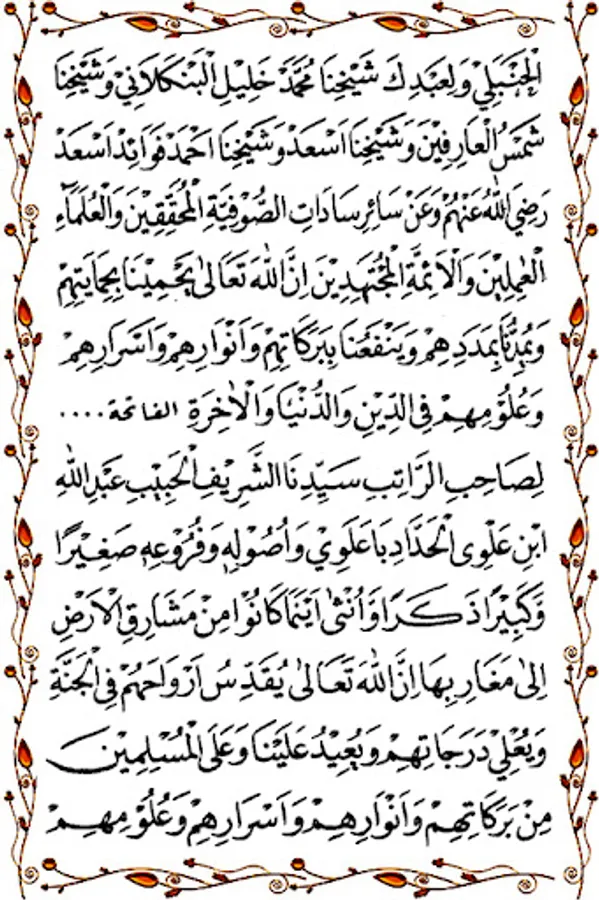 الْحَنْبَلِيْ وَلِعَبْدِكَ شَيْخِنَا مُحَمَّدْ خَلِيْلِ الْبَنْكَلَانِيْ وَشَيْخِنَا
شَمْسُ الْعَارِفِيْنَ وَشَيْخِنَا اَسْعَدْ وَشَيْخِنَا اَحْمَدْ فَوَائِدْ اَسْعَدْ
رَضِيَ اللّٰهُ عَنْهُمْ وَعَنْ سَائِرِ سَادَاتِ الصُّوْفِيَّةِ الْمُحَقِّقِيْنَ وَالْعُلَمَآءِ
الْعٰمِلِيْنَ وَالْاَئِمَّةِ الْمُجْتَهِدِيْنَ اِنَّ اللّٰهَ تَعَالٰى يَحْمِيْنَا بِحِمَايَتِهِمْ
وَيُمِدُّنَا بِمَدَدِهِمْ وَيَنْفَعُنَا بِبَرَكَاتِهِمْ وَاَنْوَارِهِمْ وَاَسْرَارِهِمْ
وَعُلُوْمِهِمْ فِى الدِّيْنِ وَالدُّنْيَا وَالْاٰخِرَةِ الفاتحة ....
لِصَاحِبِ الرَّاتِبِ سَيِّدِنَا الشَّرِيْفِ الْحَبِيْبِ عَبْدِ اللّٰهِ
ابْنِ عَلْوِى الْحَدَّادِ بَاعَلَوِيْ وَاُصُوْلِهٖ وَفُرُوْعِهٖ صَغِيْرًا
وَّكَبِيْرًا ذَكَرًا وَّاُنْثٰى اَيْنَمَا كَانُوْا مِنْ مَشَارِقِ الْاَرْضِ
اِلٰى مَغَارِبِهَا اِنَّ اللّٰهَ تَعَالٰى يُقَدِّسُ اَرْوَاحَهُمْ فِى الْجَنَّةِ
وَيُعْلِيْ دَرَجَاتِهِمْ وَيُعِيْدُ عَلَيْنَا وَعَلَى الْمُسْلِمِيْنَ
مِنْ بَرَكَاتِهِمْ وَاَنْوَارِهِمْ وَاَسْرَارِهِمْ وَعُلُوْمِهِمْ